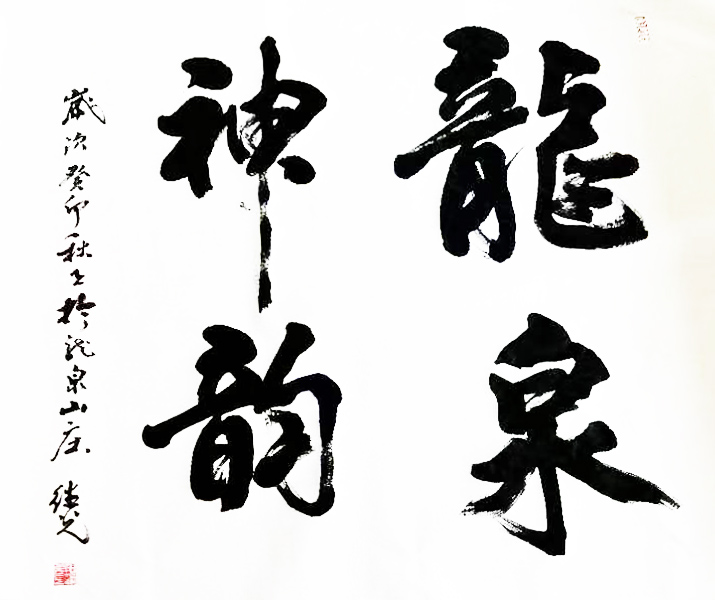 龍泉
神韵
歲次癸卯秋於龍泉山庄